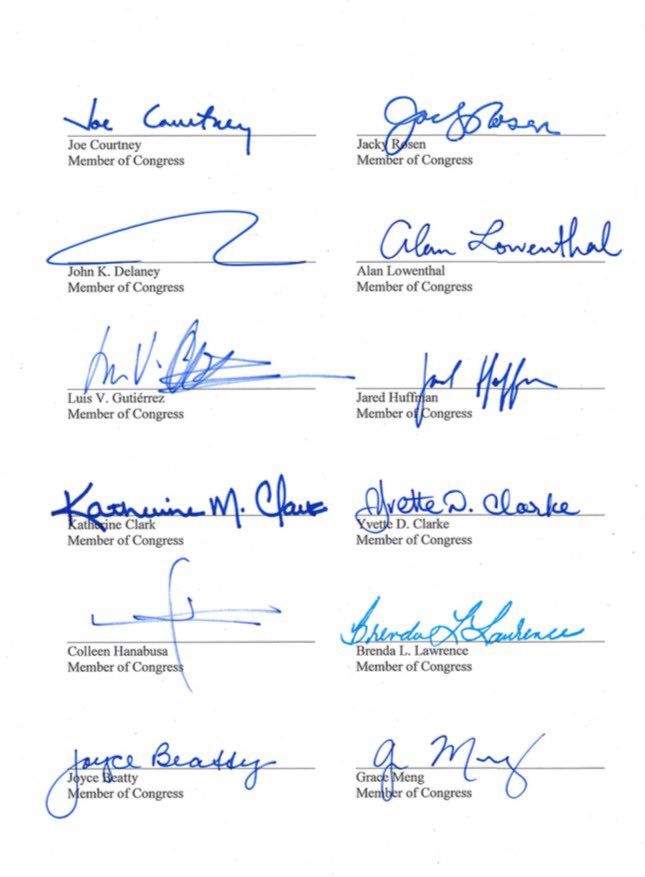 Joe Courtney
Jacky Rosen
Joe Courtney
Jacky Rosen
Member of Congress
Member of Congress
Alan Lowenthal
John K. Delaney
Alan Lowenthal
Member of Congress
Member of Congress
Luis V. Gutiérrez
Jared Huffman
Member of Congress
Member of Congress
Katherine M. Clark
Yvette D. Clarke
Katherine Clark
Yvette D. Clarke
Member of Congress
Member of Congress
Brenda L. Lawrence
Colleen Hanabusa
Brenda L. Lawrence
Member of Congress
Member of Congress
Joyce Beatty
G Meng
Joyce Beatty
Grace Meng
Member of Congress
Member of Congress